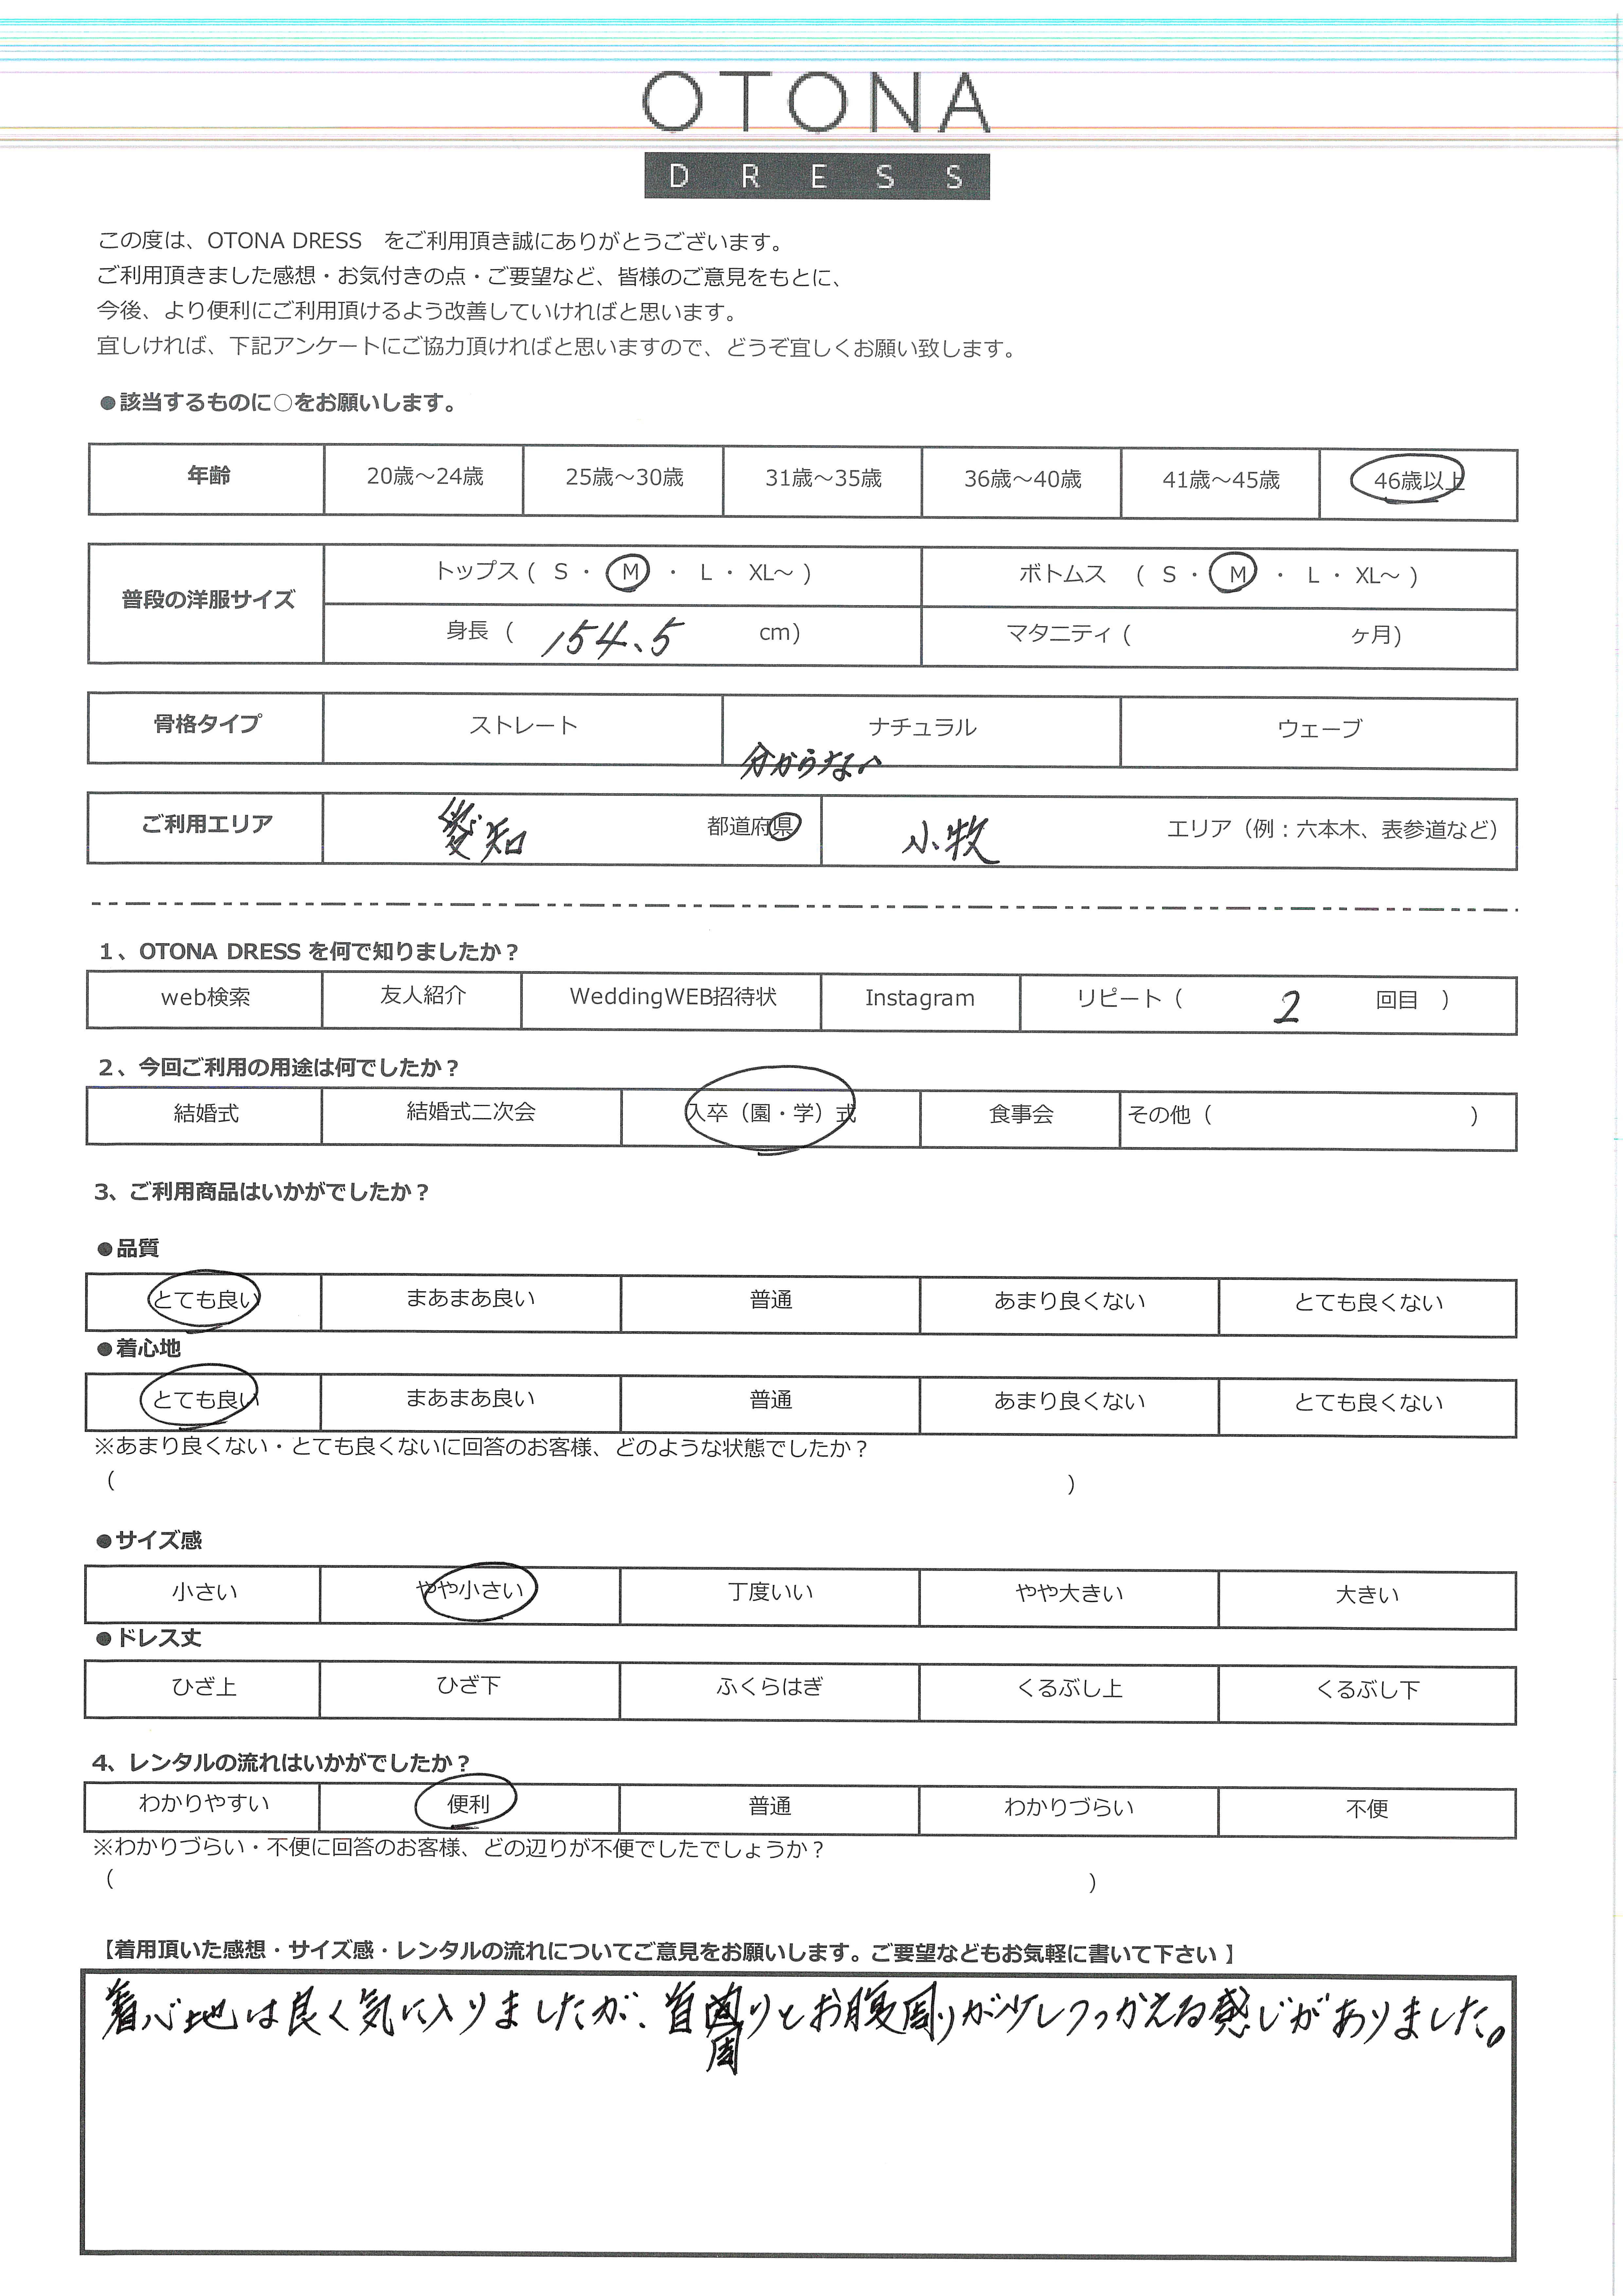 OTONA
DRESS
この度は、OTONA DRESS　をご利用頂き誠にありがとうございます。
ご利用頂きました感想・お気付きの点・ご要望など、皆様のご意見をもとに、
今後、より便利にご利用頂けるよう改善していければと思います。
宜しければ、下記アンケートにご協力頂ければと思いますので、どうぞ宜しくお願い致します。
●該当するものに○をお願いします。
年齢 20歳～24歳 25歳～30歳 31歳～35歳 36歳～40歳 41歳～45歳 46歳以上
普段の洋服サイズ トップス（ S ・ M ・ L ・ XL～ ） ボトムス （ S ・ M ・ L ・ XL～ ）
身長（ 154.5 cm） マタニティ（ ヶ月）
骨格タイプ ストレート ナチュラル ウェーブ
分からない
ご利用エリア 愛知 都道府県 小牧 エリア（例：六本木、表参道など）
1、OTONA DRESS を何で知りましたか？
web検索 友人紹介 WeddingWEB招待状 Instagram リピート（ 2 回目 ）
2、今回ご利用の用途は何でしたか？
結婚式 結婚式二次会 入卒（園・学）式 食事会 その他（ ）
3、ご利用商品はいかがでしたか？
●品質
とても良い まあまあ良い 普通 あまり良くない とても良くない
●着心地
とても良い まあまあ良い 普通 あまり良くない とても良くない
※あまり良くない・とても良くないに回答のお客様、どのような状態でしたか？
（ ）
●サイズ感
小さい やや小さい 丁度いい やや大きい 大きい
●ドレス丈
ひざ上 ひざ下 ふくらはぎ くるぶし上 くるぶし下
4、レンタルの流れはいかがでしたか？
わかりやすい 便利 普通 わかりづらい 不便
※わかりづらい・不便に回答のお客様、どの辺りが不便でしたでしょうか？
（ ）
【着用頂いた感想・サイズ感・レンタルの流れについてご意見をお願いします。ご要望などもお気軽に書いて下さい 】
着心地は良く気に入りましたが、首周りとお腹周りが少しつっかえる感じがありました。